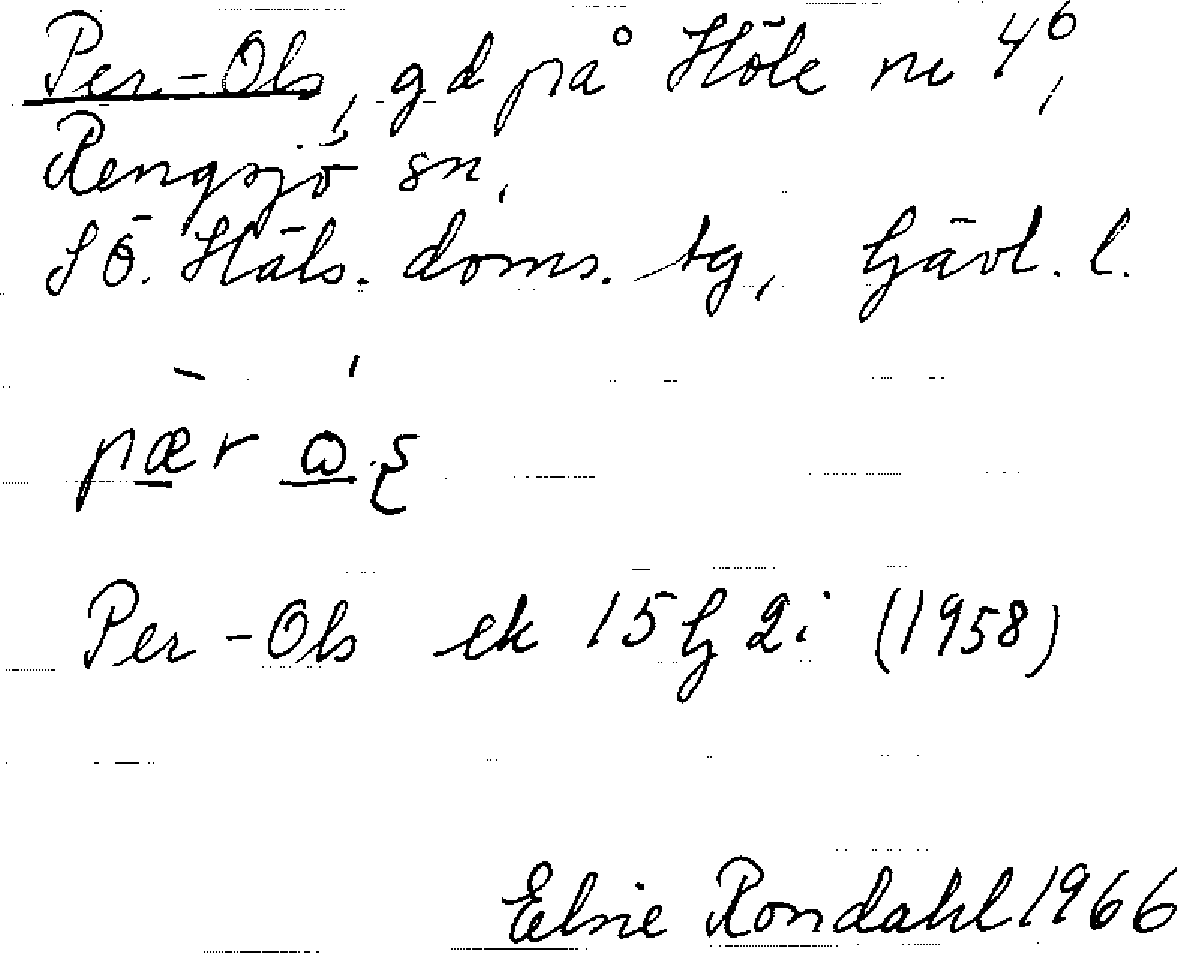 Per-Ols, gd på Höle nr 4⁶,
Rengsjö sn,
SÖ. Häls. doms. tg, Gävl. l.
pæ̀r
Per-Ols ek 15 G 2i (1958)
Elsie Rondahl 1966